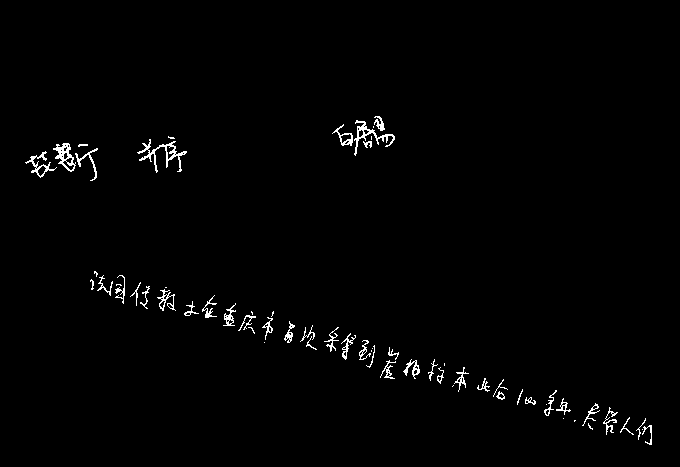 琵琶行 并序 白居易
法国传教士在重庆市首次采集到崖柏标本此后100多年,尽管人们